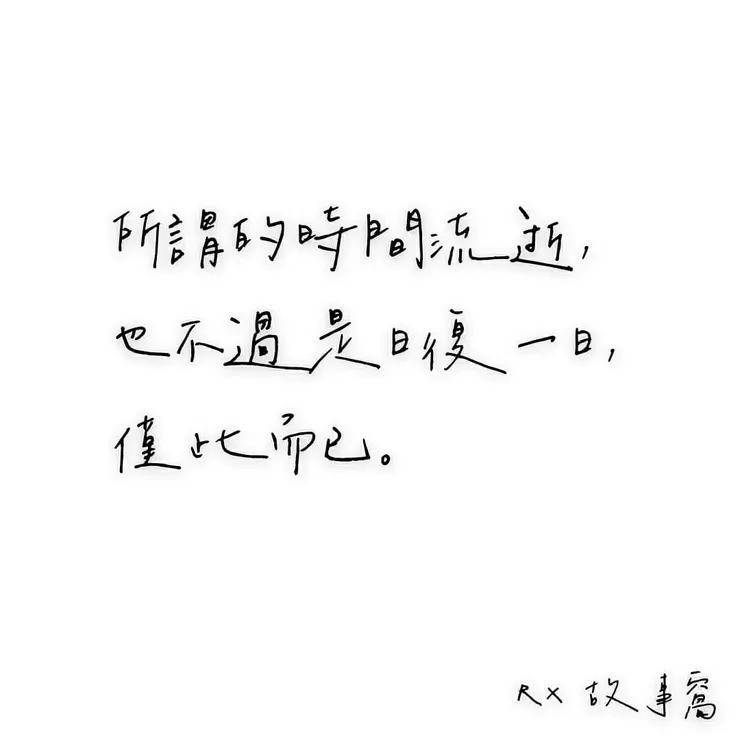 所謂的時間流逝，
也不過是日復一日，
僅此而已。
RX 故事窩